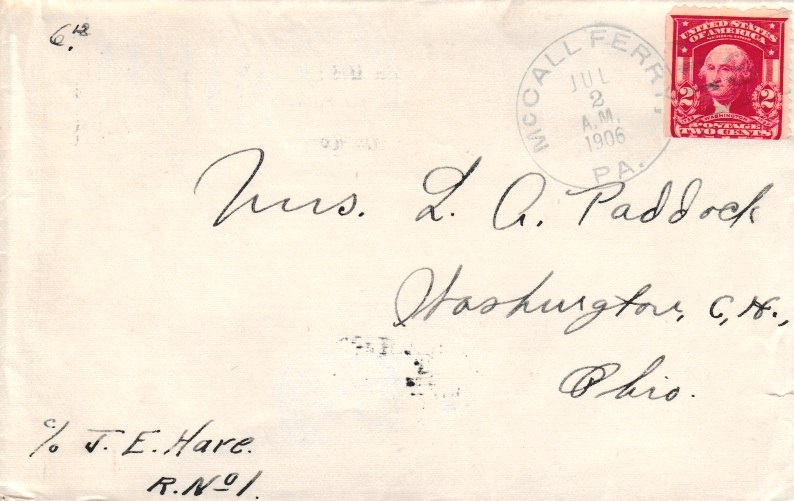 6.12
McCALL FERRY,
JUL
2
A.M.
1906
PA.
UNITED STATES
OF AMERICA
SERIES 1902
2 2
WASHINGTON
POSTAGE
TWO CENTS
Mrs. L. A. Paddock
Washington, C, H.,
Ohio.
c/o J. E. Hare.
R. No 1.